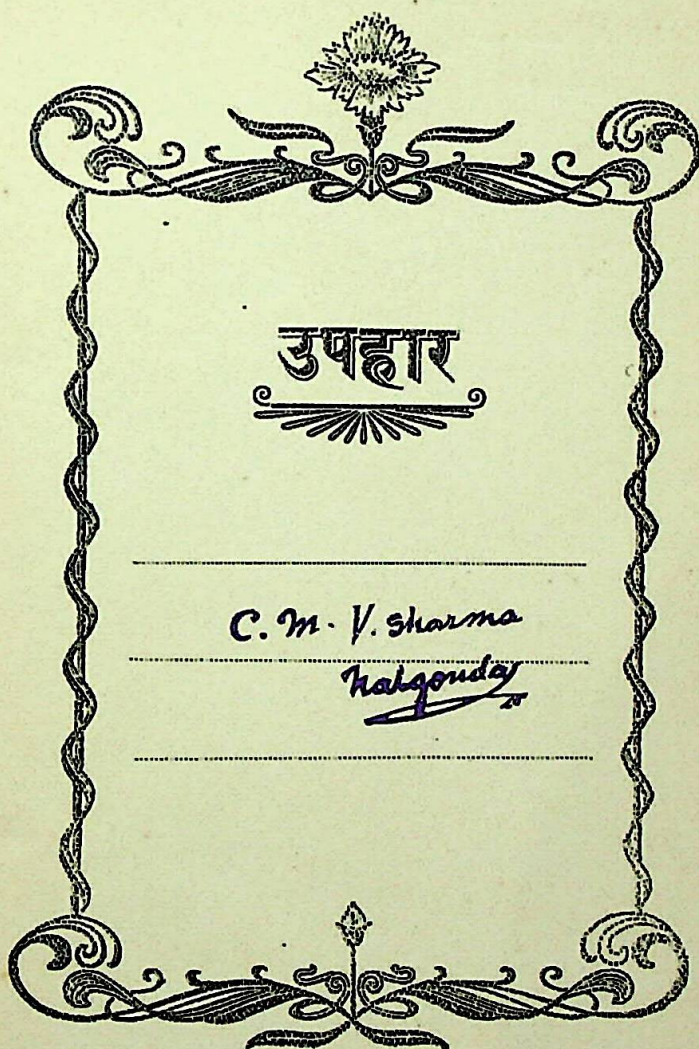 उपहार
C. M. V. Sharma
Nalgonda